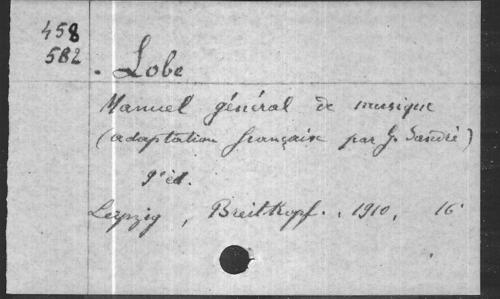 458
582
. Lobe
Manuel général de musique
(adaptation française par G. Sandré)
9e éd.
Leipzig, Breitkopf., 1910, 16°